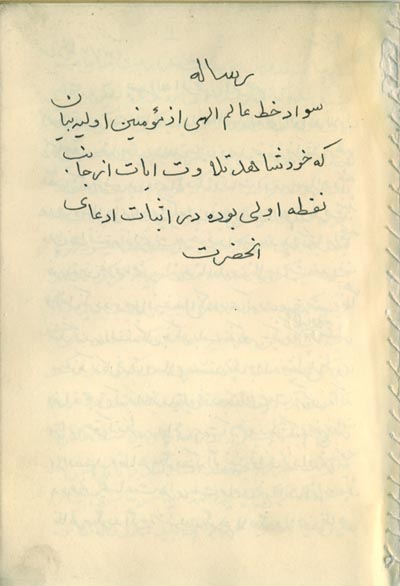 رساله
سواد خط عالم الهی از مؤمنین اولیه بیان
که خود شاهد تلاوت ایات از جانب
نقطه اولی بوده در اثبات ادعای
انحضرت